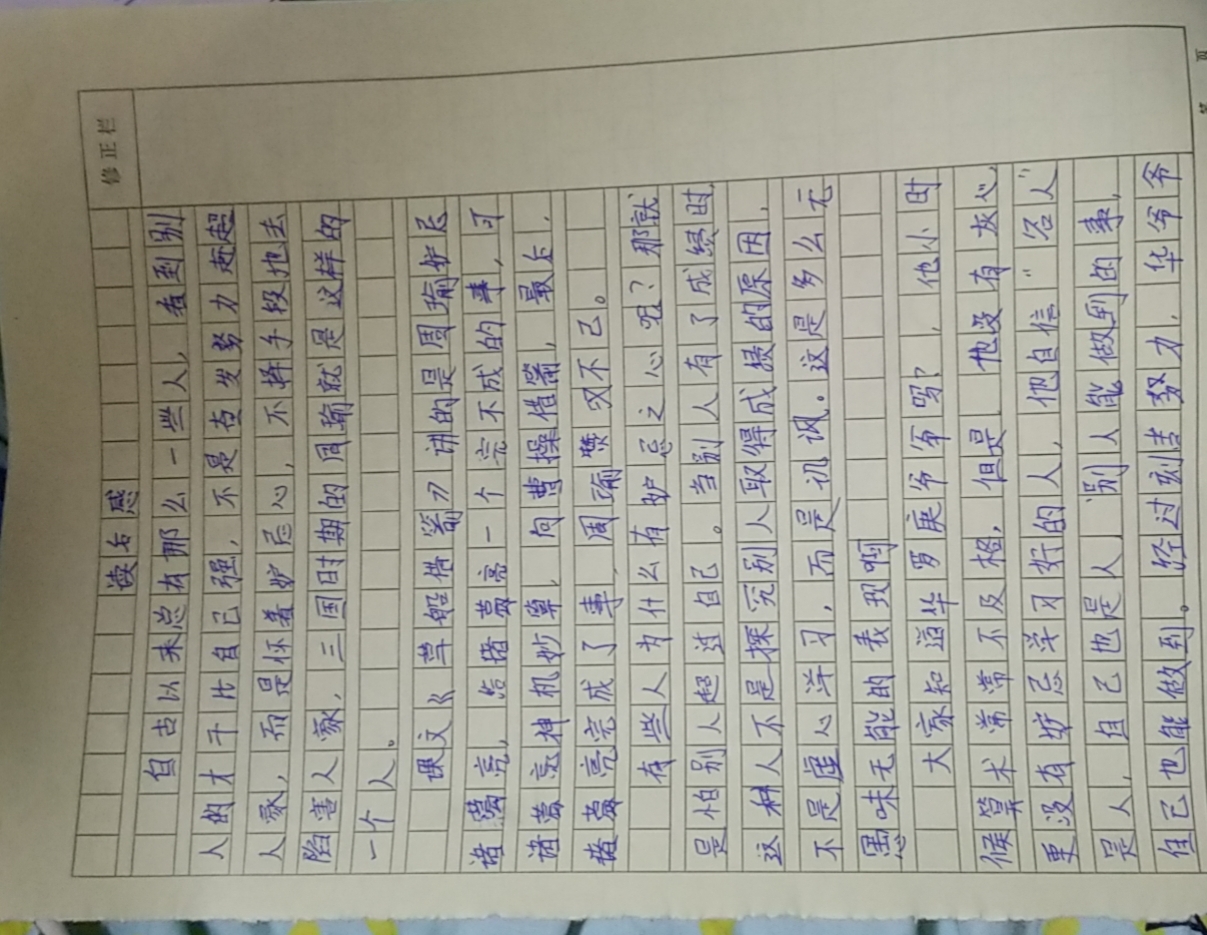 修正栏
读后感
自古以来总有那么一些人，看到别
人的才干比自己强，不是在发努力赶超
人家，而是怀着妒忌心，不择手段地去
陷害人家，三国时期的周瑜就是这样的
一个人。
课文《草船借箭》讲的是周瑜妒忌
诸葛亮，给诸葛亮一个完不成的事，可
诸葛亮神机妙算，向曹操借箭，最后，
诸葛亮完成了事，周瑜赞叹不已。
有些人为什么有妒忌之心呢？那就
是怕别人超过自己。当别人有了成绩时，
这种人不是探究别人取得成绩的原因，
不是虚心学习，而是讥讽。这是多么无
愚味无能的表现啊
大家知道华罗庚爷爷吗？，他小时
候算术常常不及格，但是他没有灰心，
更没有妒忌学习好的人，他自信“名人”
是人，自己也是人，别人能做到的事，
自己也能做到。经过刻苦努力，华爷爷
第 页